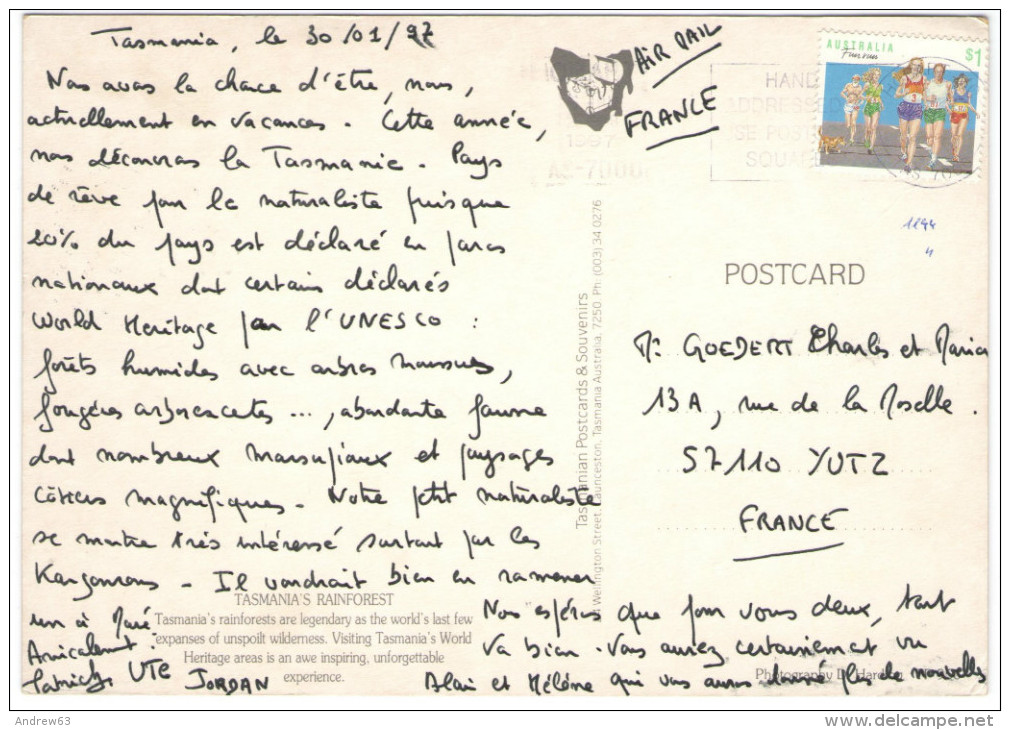 Tasmania, le 30/01/97
Nous avons la chance d'être, nous,
actuellement en vacances. Cette année,
nous découvrons la Tasmanie. Pays
de rêve pour le naturaliste puisque
20% du pays est déclaré en parcs
nationaux dont certains déclarés
World Heritage par l'UNESCO :
forêts humides avec arbres moussus,
fougères arborescentes ..., abondante faune
dont nombreux marsupiaux et paysages
côtiers magnifiques. Notre petit naturaliste
se montre très intéressé surtout par les
Kangourous. Il voudrait bien en ramener
un à
Amicalement.
Patrick, UTE JORDAN
Nous espérons que pour vous deux, tout
va bien. Vous aurez certainement vu
Alain et Hélène qui vous auront donné plus de nouvelles
TASMANIA'S RAINFOREST
Tasmania's rainforests are legendary as the world's last few
expanses of unspoilt wilderness. Visiting Tasmania's World
Heritage areas is an awe inspiring, unforgettable
experience.
Tasmanian Postcards & Souvenirs
Wellington Street, Launceston, Tasmania Australia, 7250 Ph: (003) 34 0276
AIR MAIL
FRANCE
1997
AS-7000
HAND
ADDRESSED
USE POST
SQUARES
AUSTRALIA
$1
Fun run
1244
4
POSTCARD
Mr GOEDERT Charles et Maria
13A, rue de la Moselle.
57110 YUTZ
FRANCE
Photography
Andrew63
www.delcampe.net